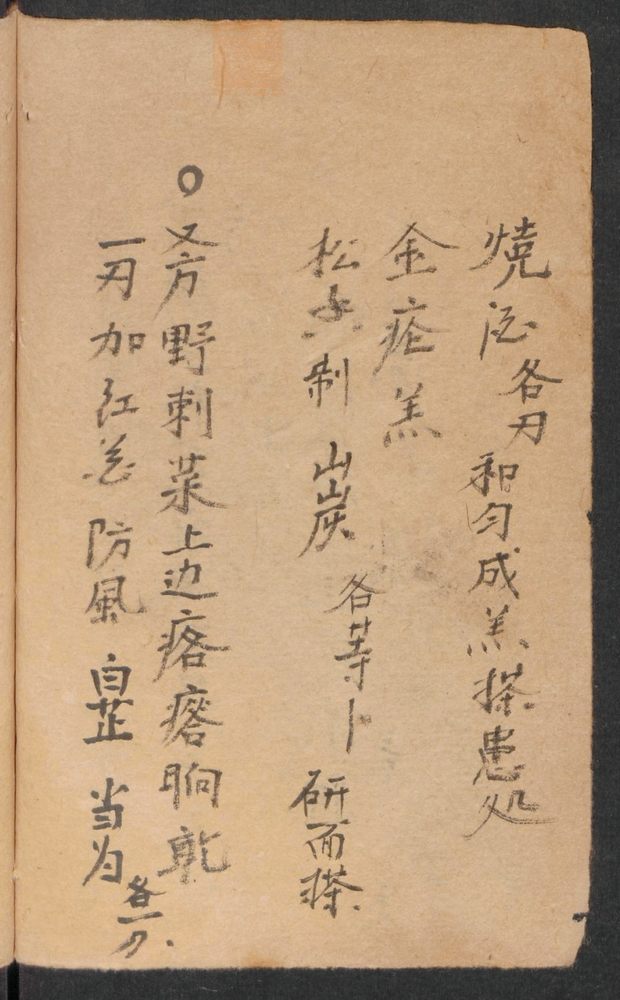 燒酒各刃和匀成羔搽患处
金疮羔
松香制 山炭 各等卜 研面搽
〇又方野刺菜上边疙瘩晌乾
一刃加红花 防風 白芷 当为各一刀